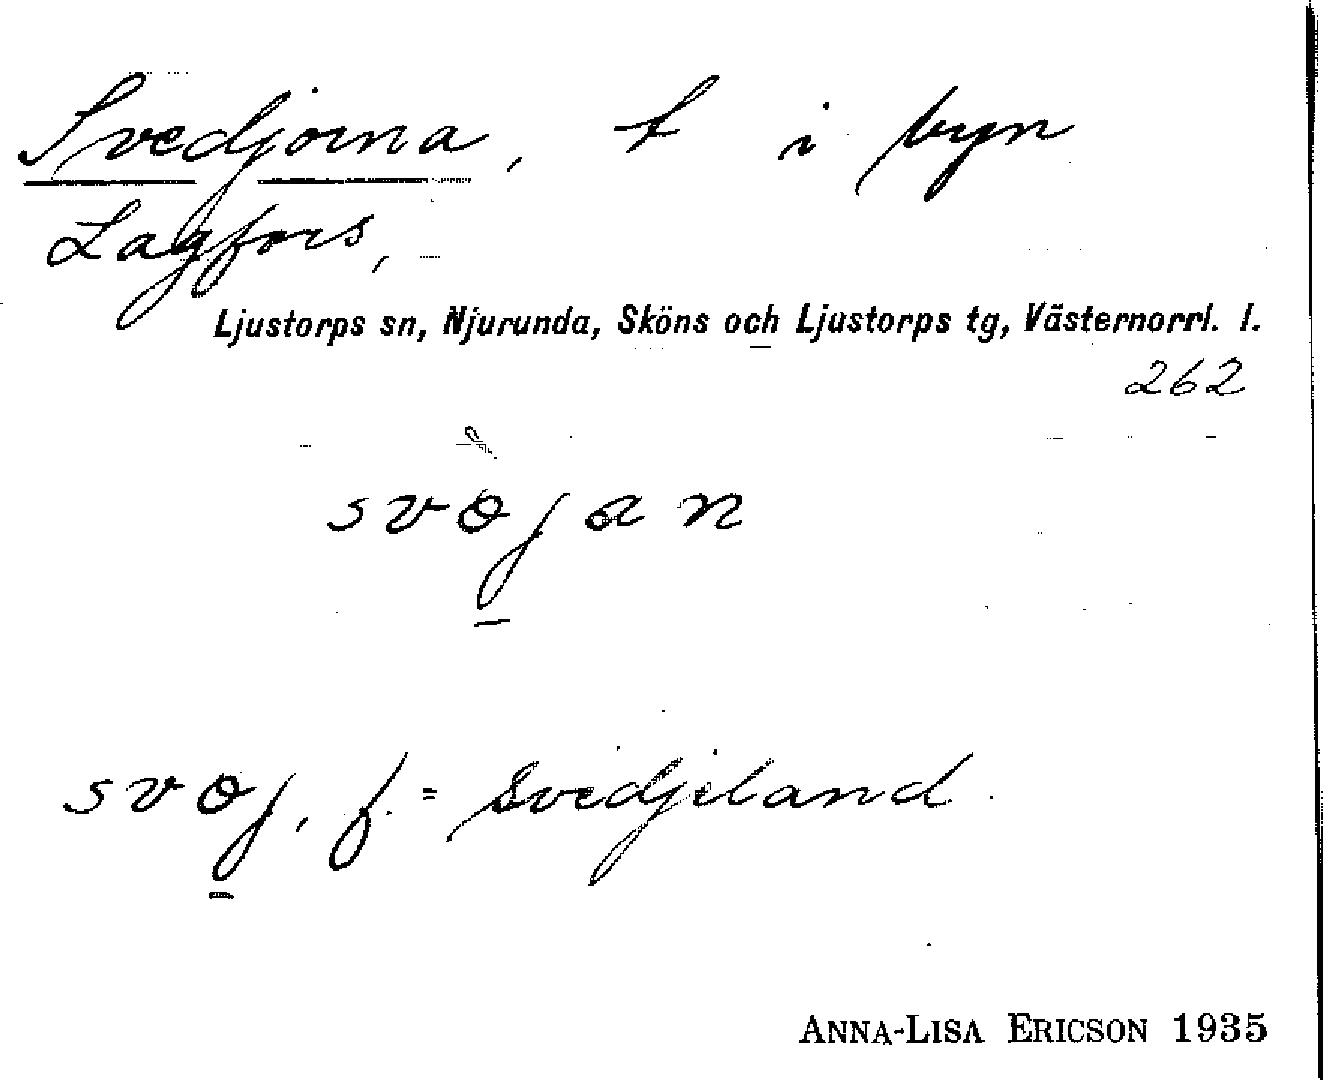 Svedjorna, t i byn
Lagfors,
Ljustorps sn, Njurunda, Sköns och Ljustorps tg, Västernorrl. l.
262
svɵjan
svɵj, f. = svedjeland.
ANNA-LISA ERICSON 1935